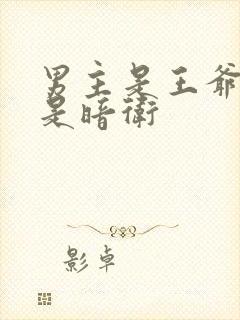 男主是王爷
是暗卫
影卓